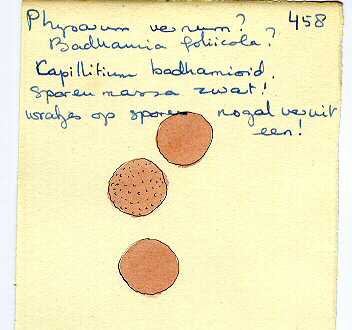 Physarum vernum? 458
Badhamia foliicola?
Capillitium badhamioid.
Sporenmassa zwart!
wratjes op sporen nogal ver uit
een!